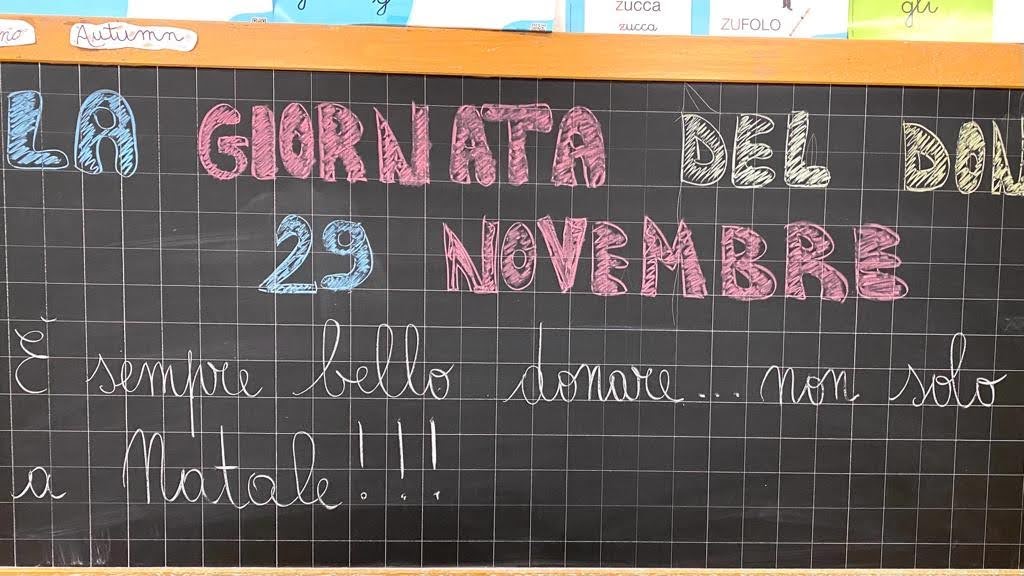 zucca
zucca
ZUFOLO
gli
Autumn
LA GIORNATA DEL DON
29 NOVEMBRE
È sempre bello donare... non solo
a Natale!!!